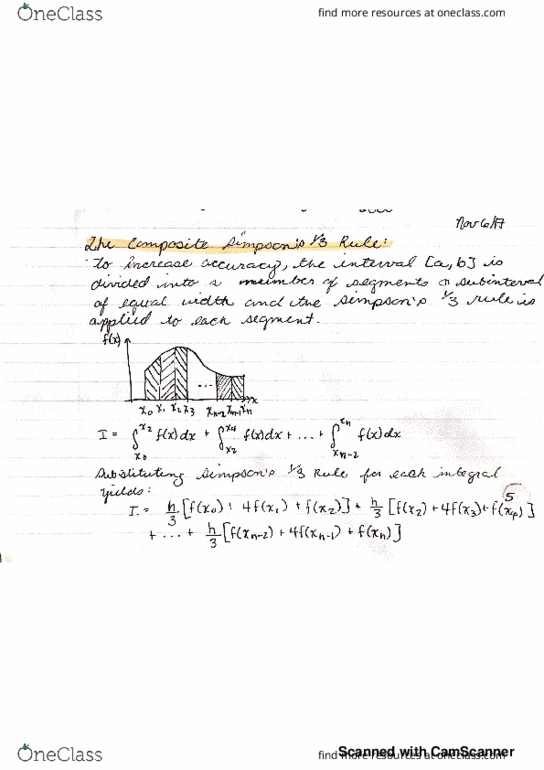 OneClass
find more resources at oneclass.com
Nov 6/17
The Composite Simpson's 1/3 Rule:
To increase accuracy, the interval [a,b] is
divided into a number of segments or subinterval
of equal width and the Simpson's 1/3 rule is
applied to each segment.
f(x)
...
x
x₀ x₁ x₂ x₃ xn-2 xn-1 xn
I = ∫x₀^x₂ f(x)dx + ∫x₂^x₄ f(x)dx + ... + ∫xn-2^xn f(x)dx
Substituting Simpson's 1/3 Rule for each integral
yields:
5
I = h/3 [f(x₀) + 4f(x₁) + f(x₂)] + h/3 [f(x₂) + 4f(x₃) + f(x₄)]
+ ... + h/3 [f(xn-2) + 4f(xn-1) + f(xn)]
OneClass
find more resources at oneclass.com
Scanned with CamScanner